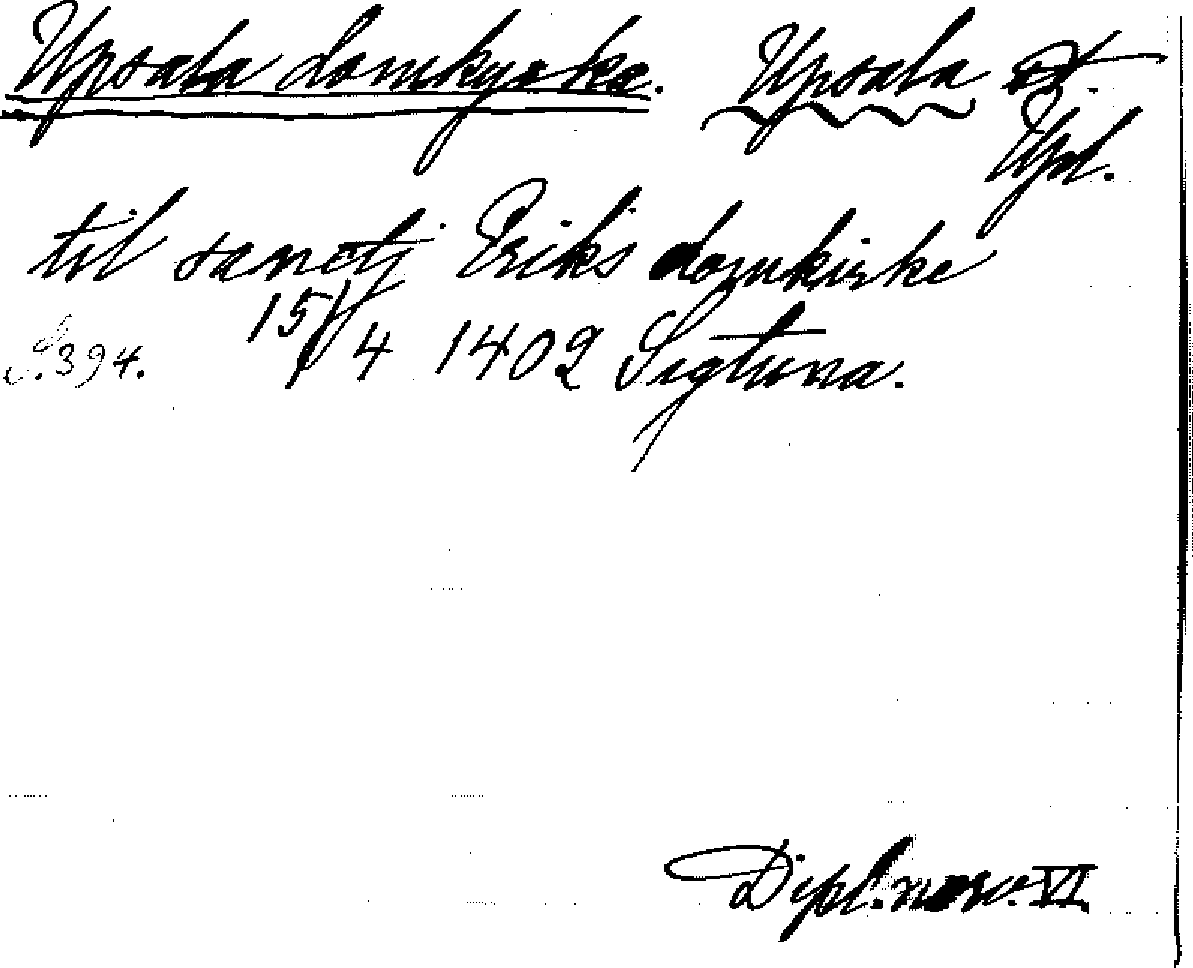 Upsala domkyrka. Upsala st.
Upl.
til sanctj Eriks domkirke
S. 394. 15/4 1402 Sigtuna.
Dipl. norv. VI.